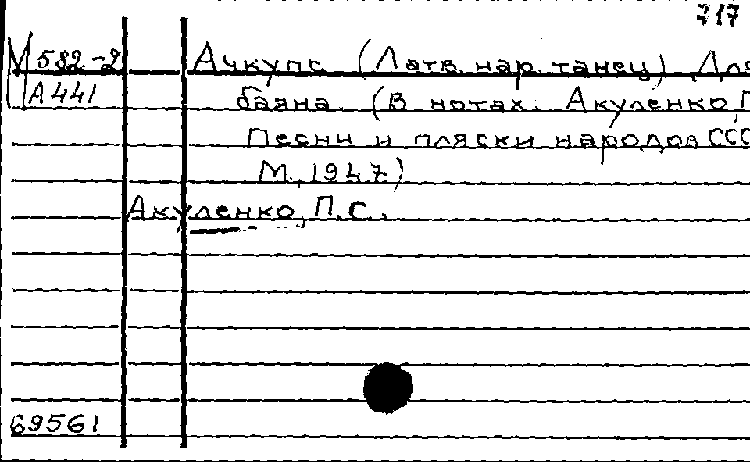 717
М 582-2 Ачкупс (Латв. нар. танец) Для
А441 баяна (В нотах: Акуленко, П
Песни и пляски народов ССС
М., 1947)
Акуленко, П.С.
69561